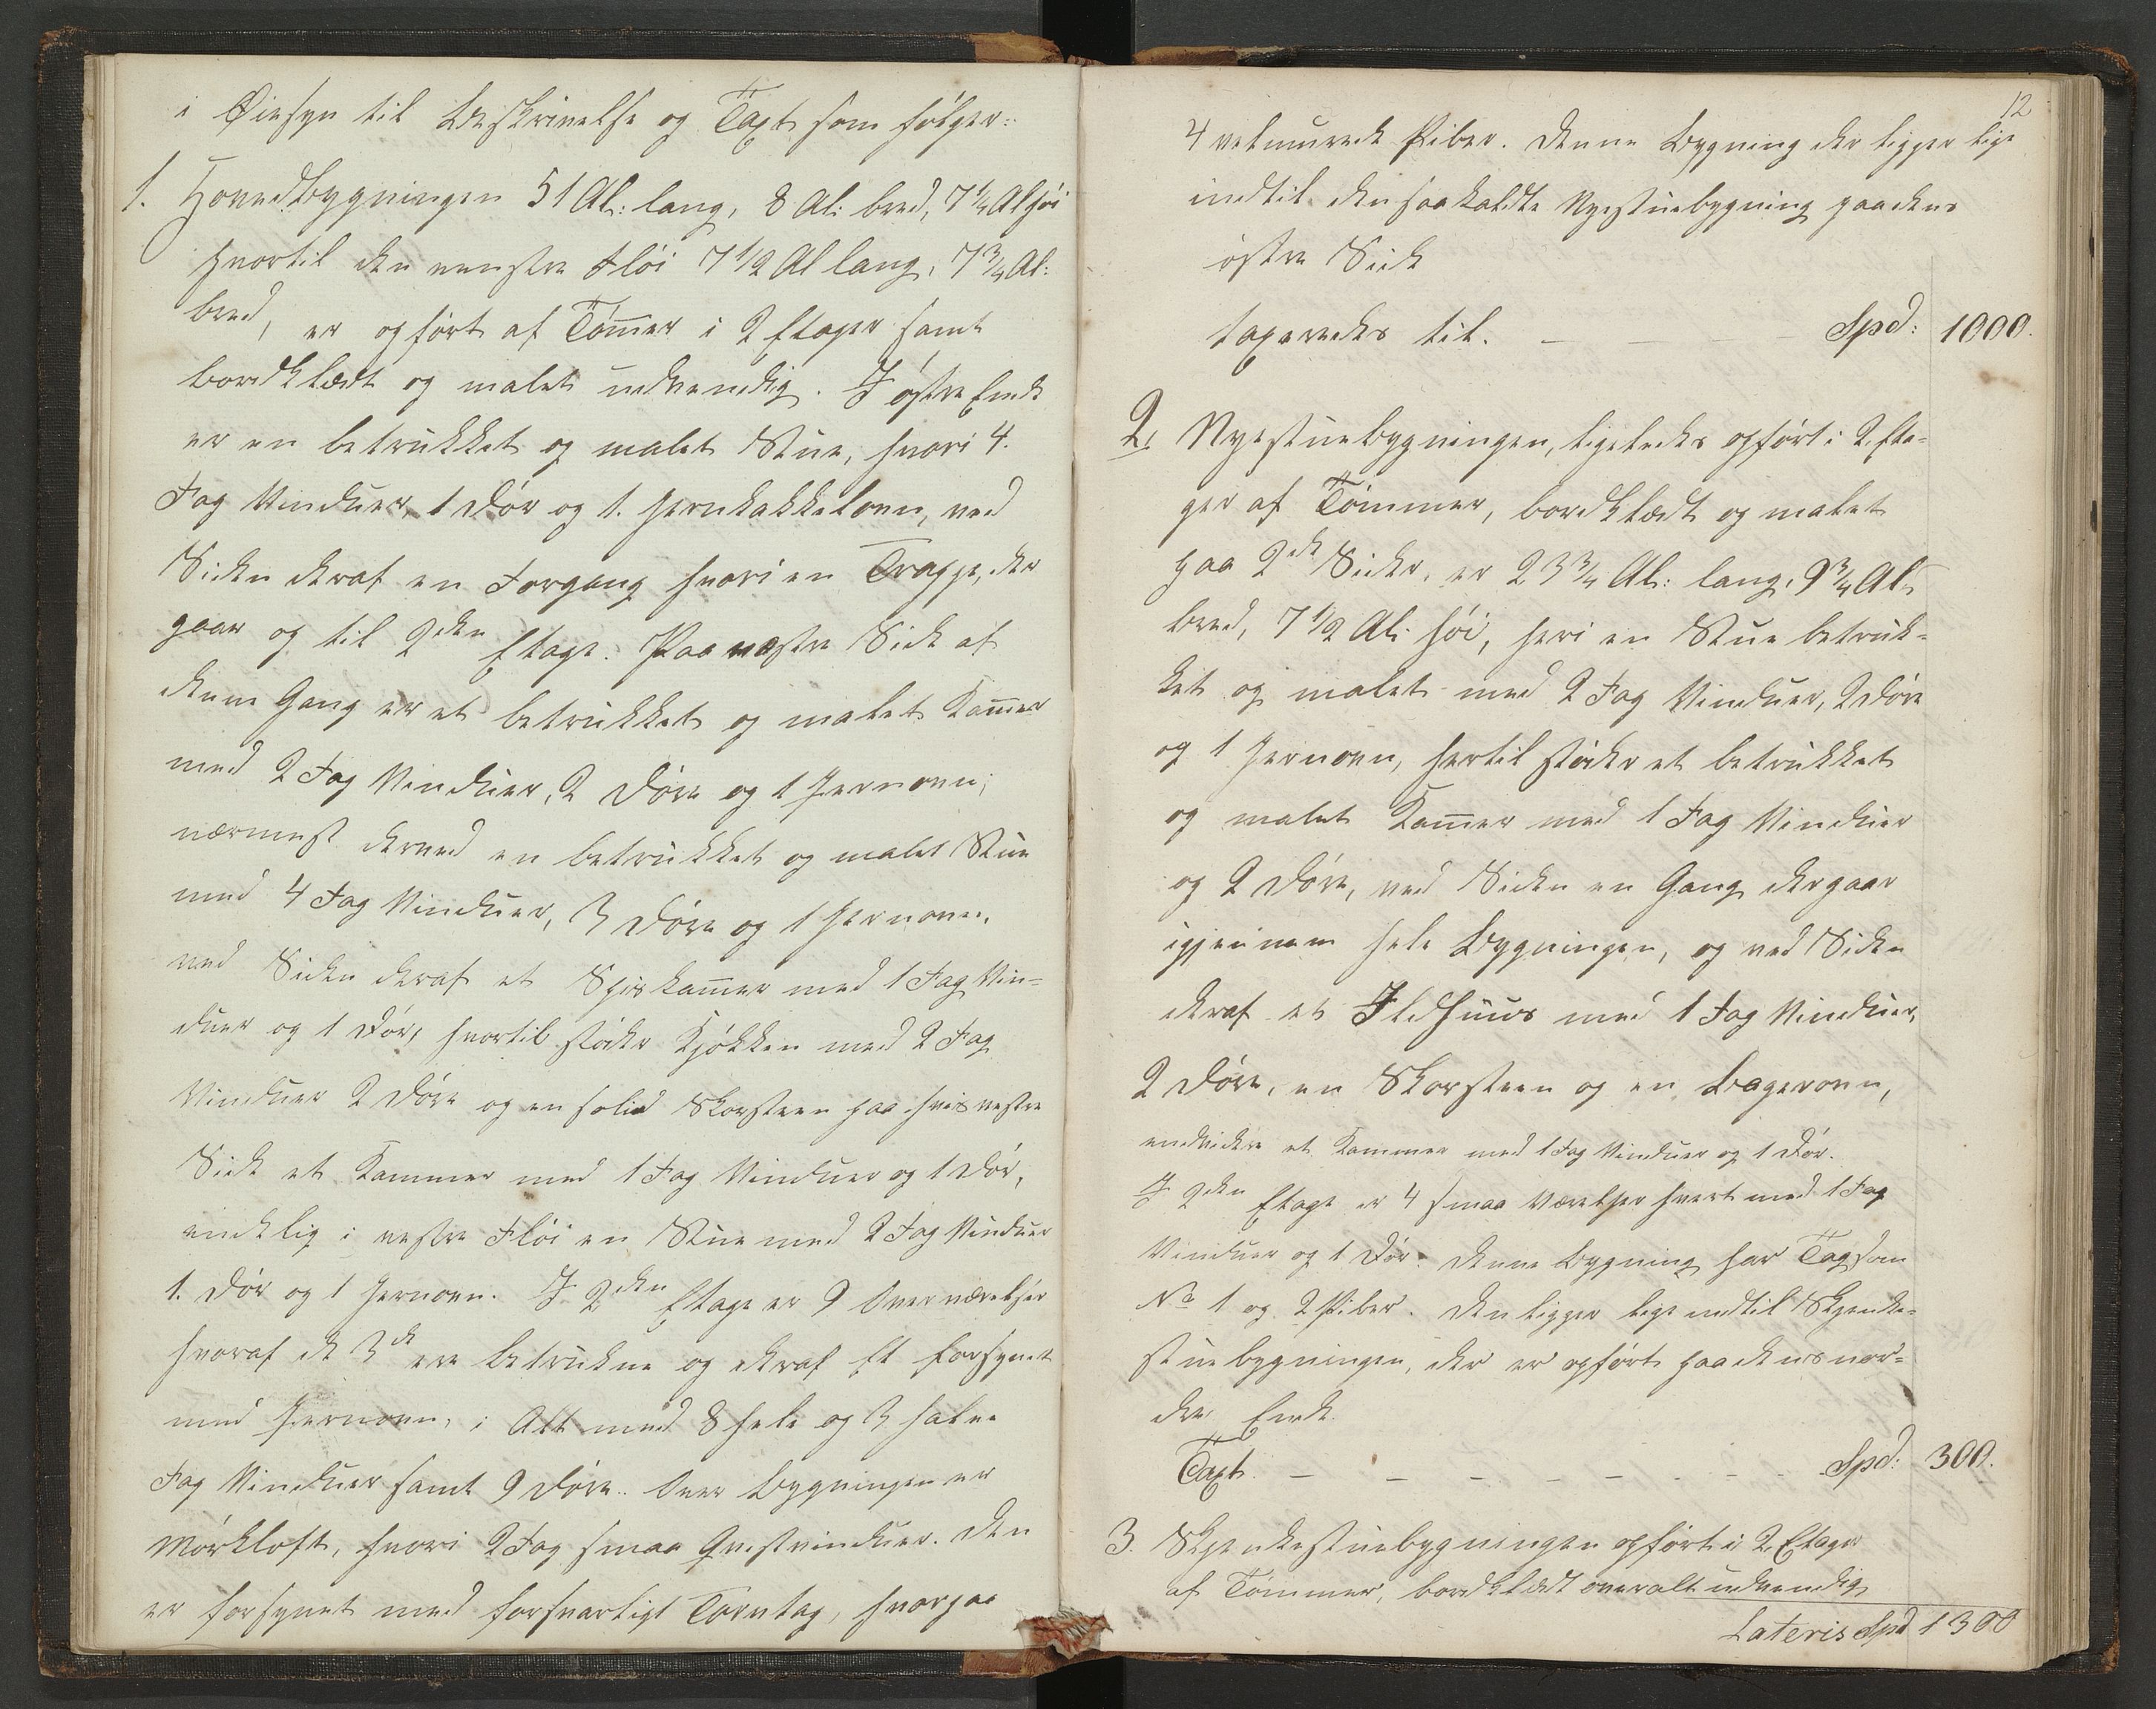 i Øiesyn til Beskrivelse og Taxt som følger:
1. Hovedbygningen 51 Al: lang, 8 Al: bred, 7 1/4 Al høi
hvortil den venstre Fløi 7 1/2 Al lang, 7 3/4 Al:
bred, er opført af Tømer i 2 Etager samt
bordklædt og malet udvendig. I østre Ende
er en betrukket og malet Stue, hvori 4.
Fag Vinduer, 1 Dør og 1. Jernkakkelovn, ved
Siden deraf en Forgang hvori en Trappe, der
gaar op til 2den Etage. Paa vestre Side af
denne Gang er et betrukket og malet Kamer
med 2 Fag Vinduer, 2 Døre og 1 Jernovn;
nærmest derved en betrukket og malet Stue
med 4 Fag Vinduer, 3 Døre og 1 Jernovn.
ved Siden deraf et Spiskamer med 1 Fag Vin=
duer og 1 Dør, hvortil støder Kjøkken med 2 Fag
Vinduer 2 Døre og en solid Skorsteen paa hvis vestre
Side et Kammer med 1 Fag Vinduer og 1 Dør,
endelig i vestre Fløi en Stue med 2 Fag Vinduer
1. Dør og 1 Jernovn. I 2den Etage er 9 Overværelser
hvoraf de 3de ere betrukne og deraf Et forsynet
med Jernovn, i Alt med 8 hele og 3 halve
Fag Vinduer samt 9 Døre. Over Bygningen er
Mørkloft, hvori 2 Fag smaa Qvistvinduer. Den
er forsynet med forsvarligt Torvtag, hvorpaa
12
4 velmurede Piber. Denne Bygning der ligger lige
indtil den saakaldte Nyestuebygning paa dens
østre Side
taxeredes til. — — — — Spd: 1000.
2. Nyestuebygningen, ligeledes opført i 2 Eta=
ger af Tømmer, bordklædt og malet
paa 2de Sider, er 23 3/4 Al: lang, 9 3/4 Al:
bred, 7 1/2 Al: høi, heri en Stue betruk=
ket og malet med 2 Fag Vinduer, 2 Døre
og 1 Jernovn, hertil støder et betrukket
og malet Kamer med 1 Fag Vinduer
og 2 Døre, ved Siden en Gang der gaar
igjennem hele Bygningen, og ved Siden
deraf et Ildhuus med 1 Fag Vinduer,
2 Døre, en Skorsteen og en Bagerovn,
endvidere et Kammer med 1 Fag Vinduer og 1 Dør.
I 2den Etage er 4 smaa Værelser hvert med 1 Fag
Vinduer og 1 Dør. Denne Bygning har Tag som
No 1 og 2 Piber. Den ligger lige indtil Skjenke=
stuebygningen, der er opført paa dens nor=
dre Ende.
Taxt. — — — — — — — Spd: 300.
3. Skjenkestuebygningen opført i 2 Etager
af Tømmer, bordklædt overalt udvendig
Lateris Spd 1300